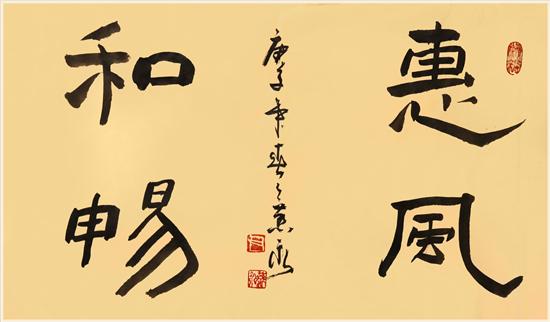 惠風
和暢
庚子年春